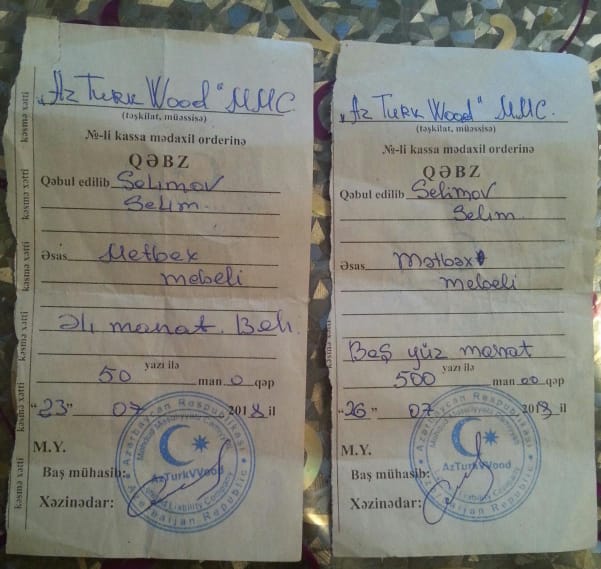 kəsmə xətti kəsmə xətti kəsmə xətti kəsmə xətti kəsmə xətti
"Az Turk Wood" MMC
(təşkilat, müəssisə)
№-li kassa mədaxil orderinə
QƏBZ
Qəbul edilib Selimov
Selim.
Əsas Metbex
mebeli
Əli manat. Beh.
yazı ilə
50 man 0 qəp
"23" 07 2018 il
M.Y.
Baş mühasib:
Xəzinədar:
Azərbaycan Respublikası
Məhdud Məsuliyyətli Cəmiyyəti
AzTurkWood
Limited Liability Company
Azerbaijan Republic
"Az Turk Wood" MMC.
(təşkilat, müəssisə)
№-li kassa mədaxil orderinə
QƏBZ
Qəbul edilib Selimov
Selim
Əsas Mətbəx
mebeli
Beş yüz manat
yazı ilə
500 man 00 qəp
"26" 07 2018 il
M.Y.
Baş mühasib:
Xəzinədar:
Azərbaycan Respublikası
Məhdud Məsuliyyətli Cəmiyyəti
AzTurkWood
Limited Liability Company
Azerbaijan Republic